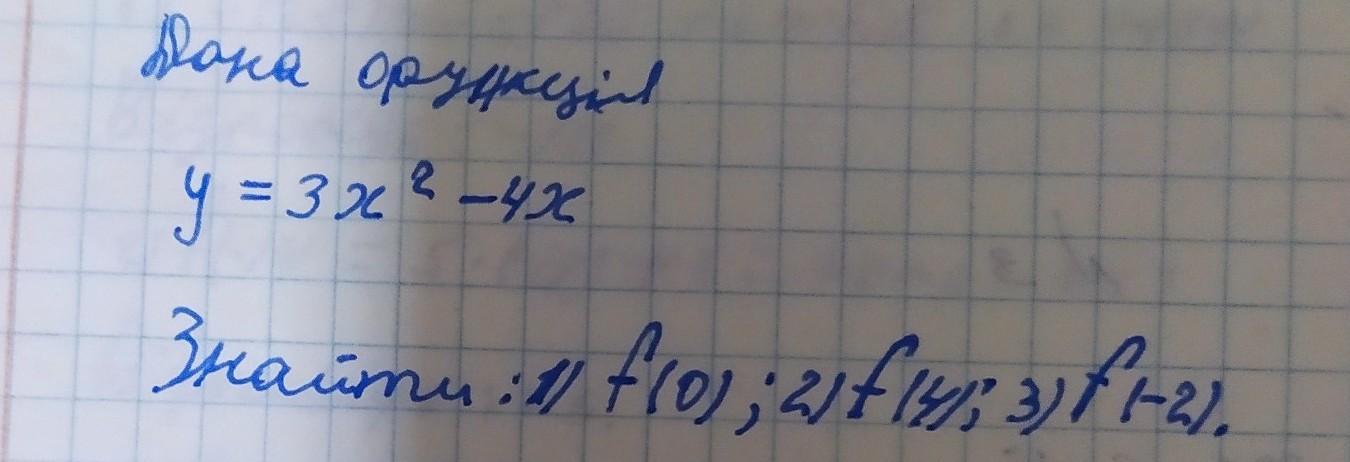 Дана функція
y = 3x² - 4x
Знайти: 1) f(0); 2) f(4); 3) f(-2).